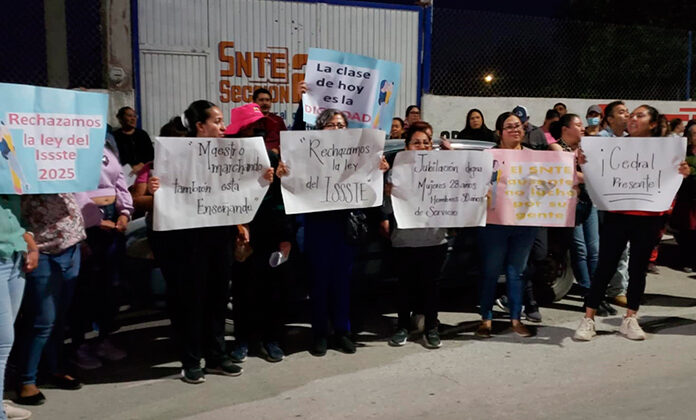 SNTE
Sección
Rechazamos
la ley del
Issste
2025
"Maestro
marchando
también esta
Enseñando"
"Rechazamos
la ley
del ISSSTE"
La clase de
hoy es la
DIGNIDAD
Jubilación digna
Mujeres 28 años
Hombres 30 años
de Servicio
SNTE
su gente
¡Cedral
Presente!